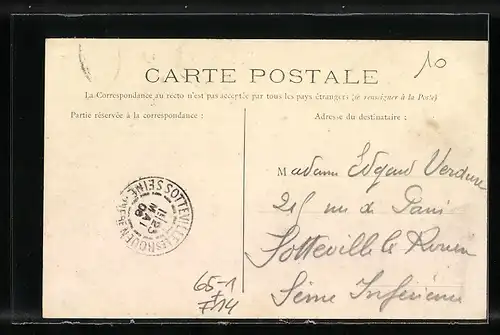 10
CARTE POSTALE
La Correspondance au recto n'est pas acceptée par tous les pays étrangers (se renseigner à la Poste)
Partie réservée à la correspondance :
Adresse du destinataire :
Madame Edgard Verdure
215 rue de Paris
Sotteville le Rouen
Seine Inférieure
SOTTEVILLE-LES-ROUEN
SEINE
MAI
65-1
F14